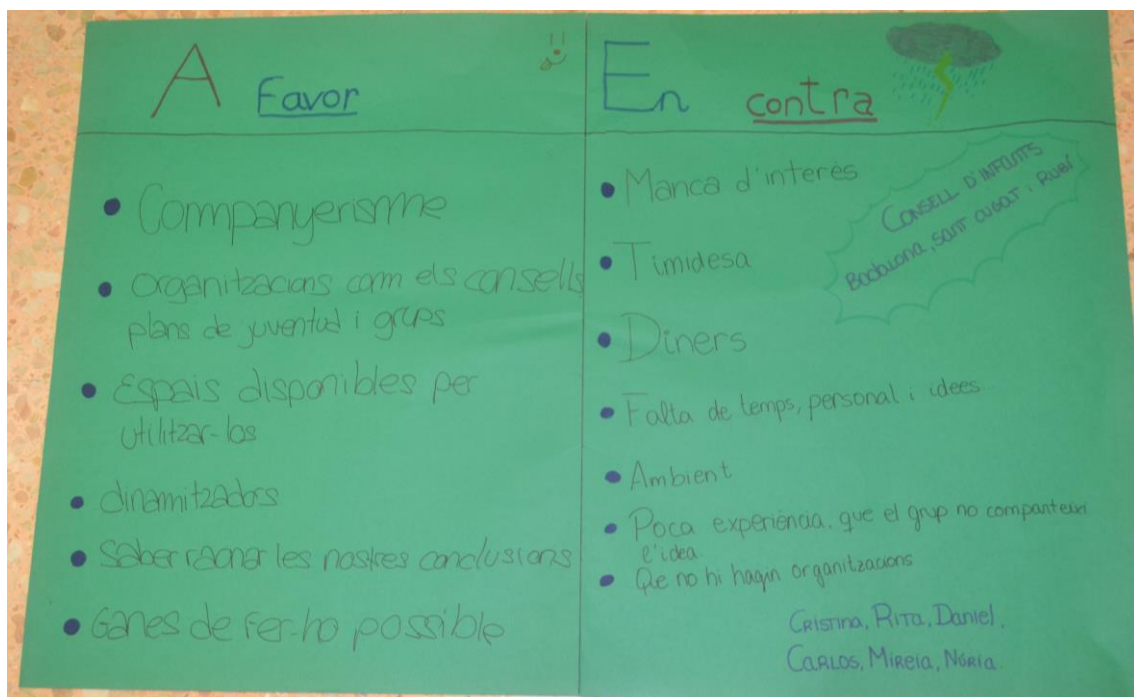 A Favor
• Companyerisme
• Organitzacions com els consells
plans de juventud i grups
• Espais disponibles per
utilitzar-los
• dinamitzadors
• Saber raonar les nostres conclusions
• Ganes de fer-ho possible
En contra
CONSELL D'INFANTS
Badalona, sant cugat i Rubí
• Manca d'interès
• Timidesa
• Diners
• Falta de temps, personal i idees...
• Ambient
• Poca experiència. que el grup no companteixi
l'idea.
• Que no hi hagin organitzacions
Cristina, Rita, Daniel,
Carlos, Mireia, Núria.